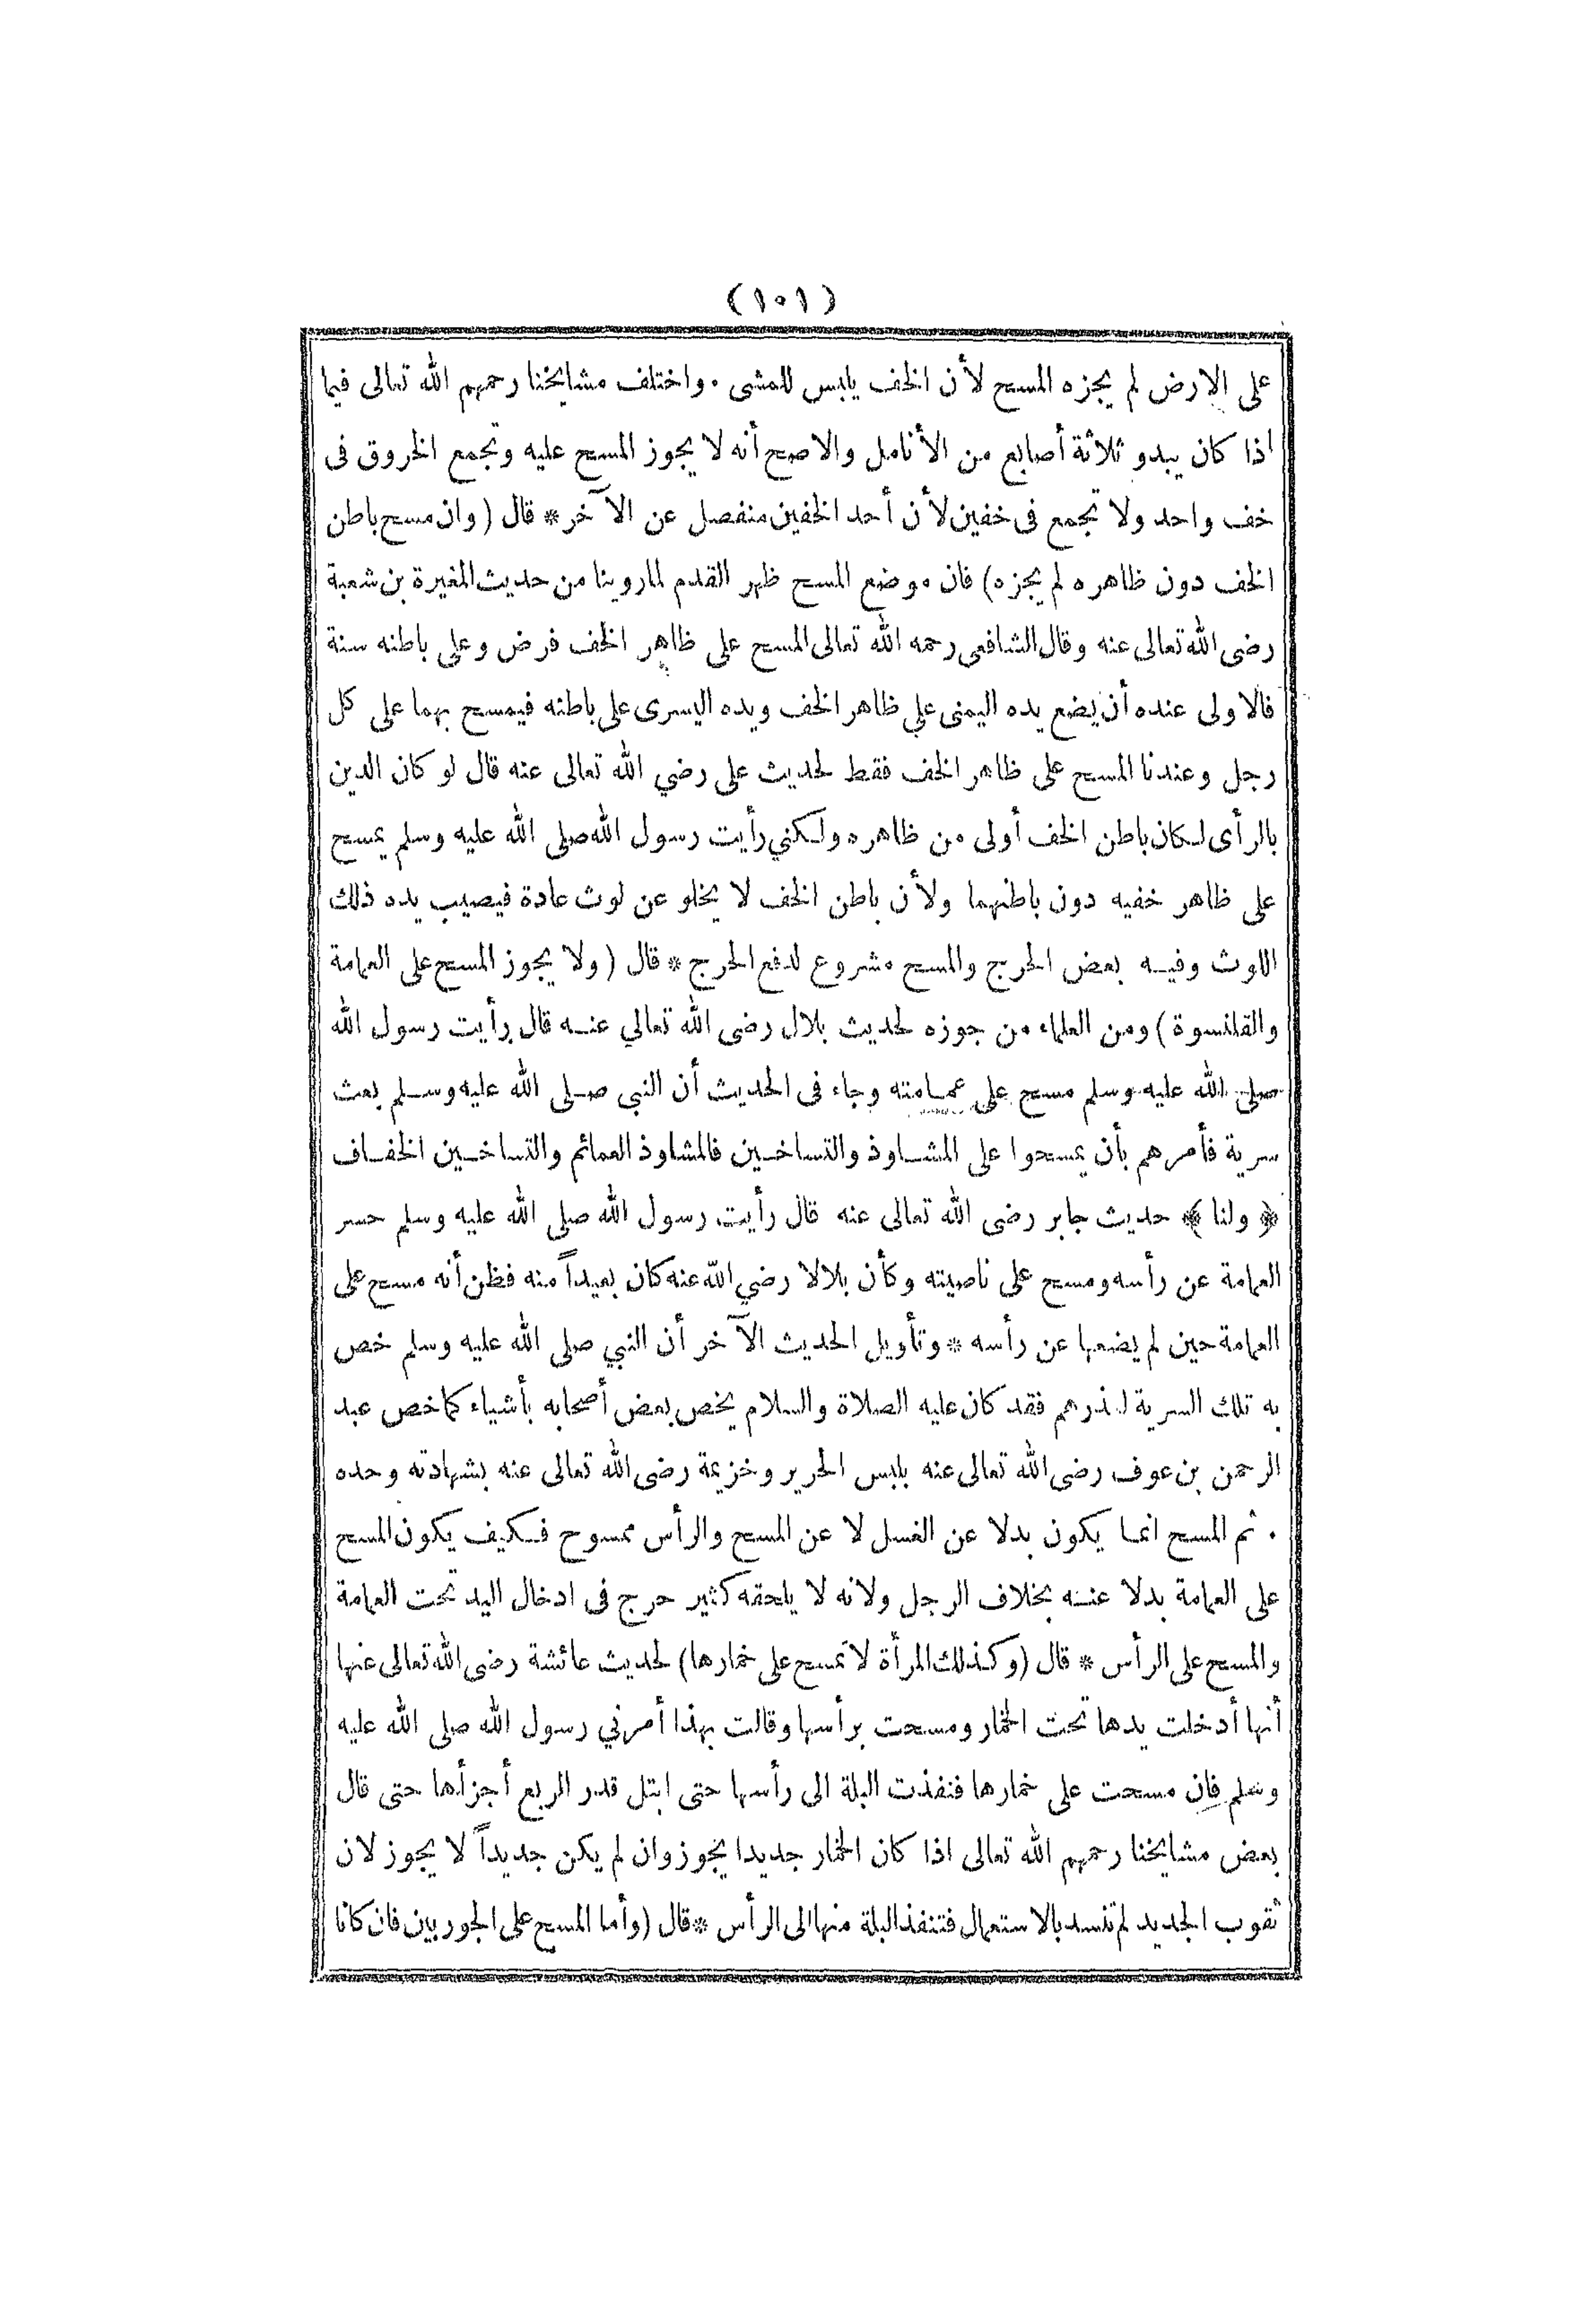 (١٠١)
على الارض لم يجزه المسح لأن الخف يلبس للمشى . واختلف مشايخنا رحمهم الله تعالى فيما
اذا كان يبدو ثلاثة أصابع من الأنامل والاصح أنه لا يجوز المسح عليه وتجمع الخروق فى
خف واحد ولا تجمع فى خفين لأن أحد الخفين منفصل عن الآخر * قال ( وان مسح باطن
الخف دون ظاهره لم يجزه ) فان موضع المسح ظهر القدم لماروينا من حديث المغيرة بن شعبة
رضى الله تعالى عنه وقال الشافعى رحمه الله تعالى المسح على ظاهر الخف فرض وعلى باطنه سنة
فالاولى عنده أن يضع يده اليمنى على ظاهر الخف ويده اليسرى على باطنه فيمسح بهما على كل
رجل وعندنا المسح على ظاهر الخف فقط لحديث على رضي الله تعالى عنه قال لو كان الدين
بالرأى لكان باطن الخف أولى من ظاهره ولكني رأيت رسول الله صلى الله عليه وسلم يمسح
على ظاهر خفيه دون باطنهما ولأن باطن الخف لا يخلو عن لوث عادة فيصيب يده ذلك
اللوث وفيه بعض الحرج والمسح مشروع لدفع الحرج * قال ( ولا يجوز المسح على العمامة
والقلنسوة ) ومن العلماء من جوزه لحديث بلال رضى الله تعالي عنه قال رأيت رسول الله
صلى الله عليه وسلم مسح على عمامته وجاء فى الحديث أن النبى صلى الله عليه وسلم بعث
سرية فأمرهم بأن يمسحوا على المشاوذ والتساخين فالمشاوذ العمائم والتساخين الخفاف
﴿ ولنا ﴾ حديث جابر رضى الله تعالى عنه قال رأيت رسول الله صلى الله عليه وسلم حسر
العمامة عن رأسه ومسح على ناصيته وكأن بلالا رضي الله عنه كان بعيداً منه فظن أنه مسح على
العمامة حين لم يضعها عن رأسه * وتأويل الحديث الآخر أن النبي صلى الله عليه وسلم خص
به تلك السرية لعذرهم فقد كان عليه الصلاة والسلام يخص بعض أصحابه بأشياء كما خص عبد
الرحمن بن عوف رضى الله تعالى عنه بلبس الحرير وخزيمة رضى الله تعالى عنه بشهادته وحده
. ثم المسح انما يكون بدلا عن الغسل لا عن المسح والرأس ممسوح فكيف يكون المسح
على العمامة بدلا عنه بخلاف الرجل ولانه لا يلحقه كثير حرج فى ادخال اليد تحت العمامة
والمسح على الرأس * قال ( وكذلك المرأة لا تمسح على خمارها ) لحديث عائشة رضى الله تعالى عنها
أنها أدخلت يدها تحت الخمار ومسحت برأسها وقالت بهذا أمرني رسول الله صلى الله عليه
وسلم فان مسحت على خمارها فنفذت البلة الى رأسها حتى ابتل قدر الربع أجزأها حتى قال
بعض مشايخنا رحمهم الله تعالى اذا كان الخمار جديدا يجوز وان لم يكن جديداً لا يجوز لان
ثقوب الجديد لم تنسد بالاستعمال فتنفذ البلة منها الى الرأس * قال ( وأما المسح على الجوربين فان كانا